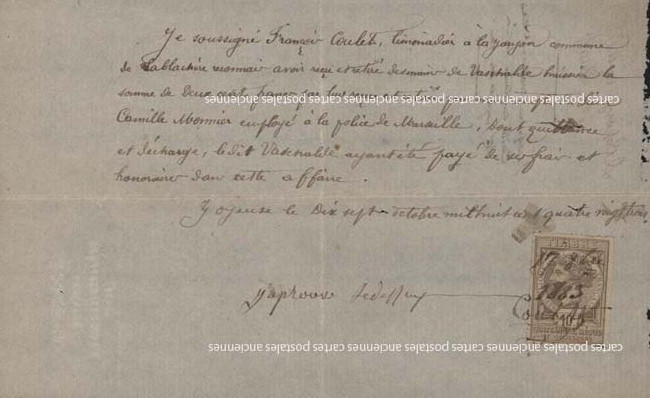 Je soussigné François Coulet, limonadier à la commune
de Lablachère reconnais avoir reçu et retiré des mains de Vaschalde huissier la
somme de deux cent francs par lui
Camille Monnier employé à la police de Marseille, Dont quittance
et décharge, ledit Vaschalde ayant été payé de ses frais et
honoraires dans cette affaire.
Joyeuse le Dix sept octobre mil huit cent quatre vingt trois
J'approuve
1883
Coulet
cartes postales anciennes cartes postales anciennes cartes postales anciennes cartes postales anciennes
cartes postales anciennes cartes postales anciennes cartes postales anciennes cartes postales anciennes